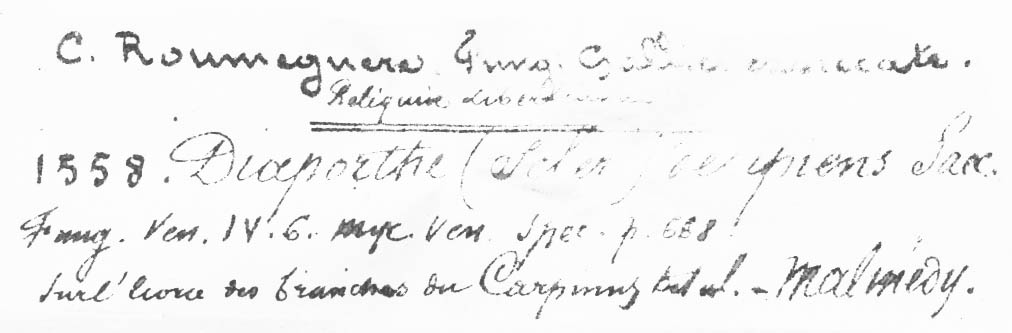 C. Roumeguere. Fung. Gallici exsiccate.
Reliquiae Libertianae
1558. Diaporthe (Scler.) decipiens Sacc.
Fung. Ven. IV. 6. myc. Ven. Spec. p.
Sur l'écorce des branches du Carpinus betul. - Malmédy.